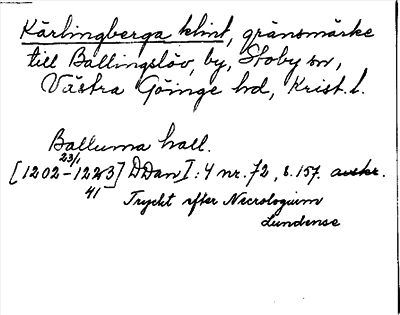 Kärlingberga klint, gränsmärke
till Ballingslöv, by, Stoby sn,
Västra Göinge hd, Krist. l.
Balluma hall.
[1202-23/1 1223] DDan I: 4 nr. 72, s. 157. avskr.
41
Tryckt efter Necrologium
Lundense